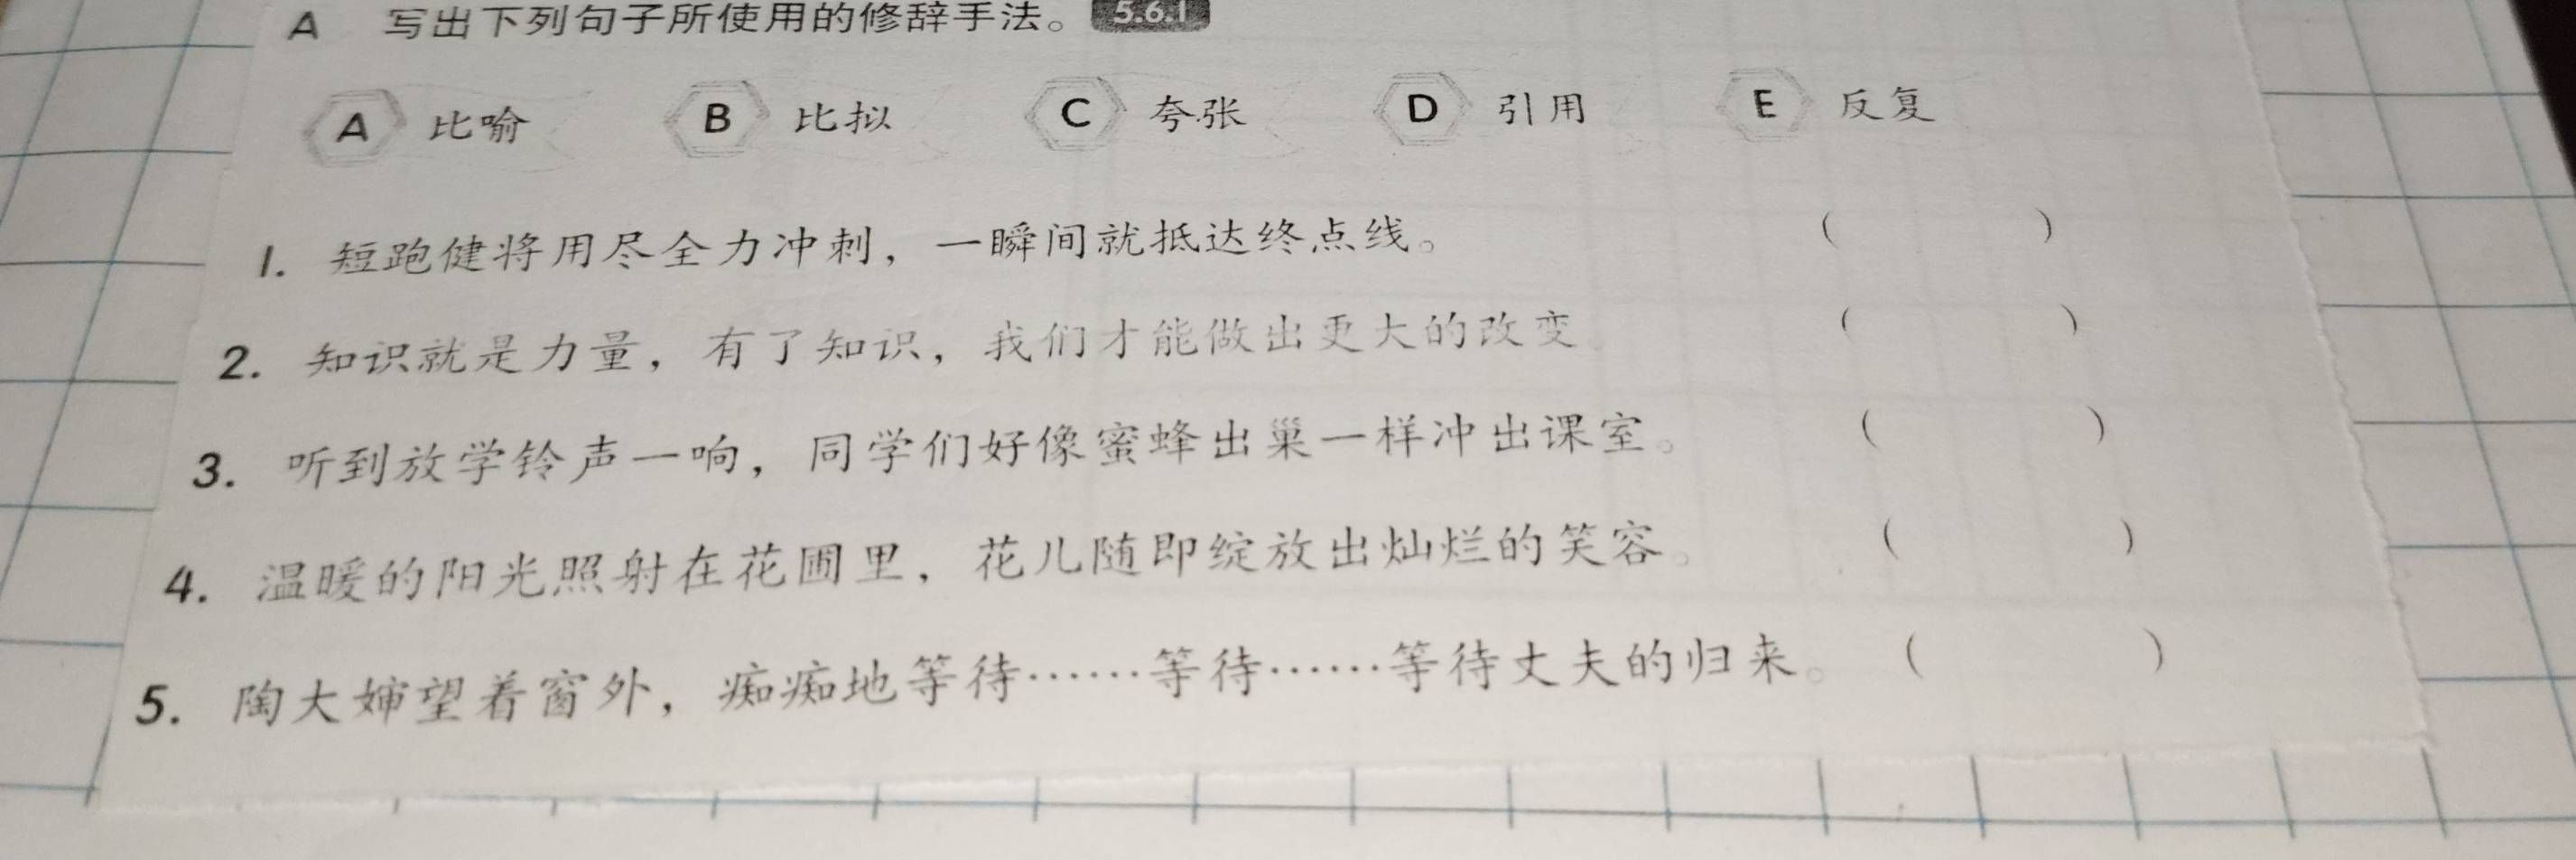 A 写出下列句子所使用的修辞手法。 5.6.1
A 比喻 B 比拟 C 夸张 D 引用 E 反复
1. 短跑健将用尽全力冲刺，一瞬间就抵达终点线。 ( )
2. 知识就是力量，有了知识，我们才能做出更大的改变。 ( )
3. 听到放学铃声一响，同学们好像蜜蜂出巢一样冲出课室。 ( )
4. 温暖的阳光照射在花圃里，花儿随即绽放出灿烂的笑容。 ( )
5. 陶大婶望着窗外，痴痴地等待……等待……等待丈夫的归来。 ( )